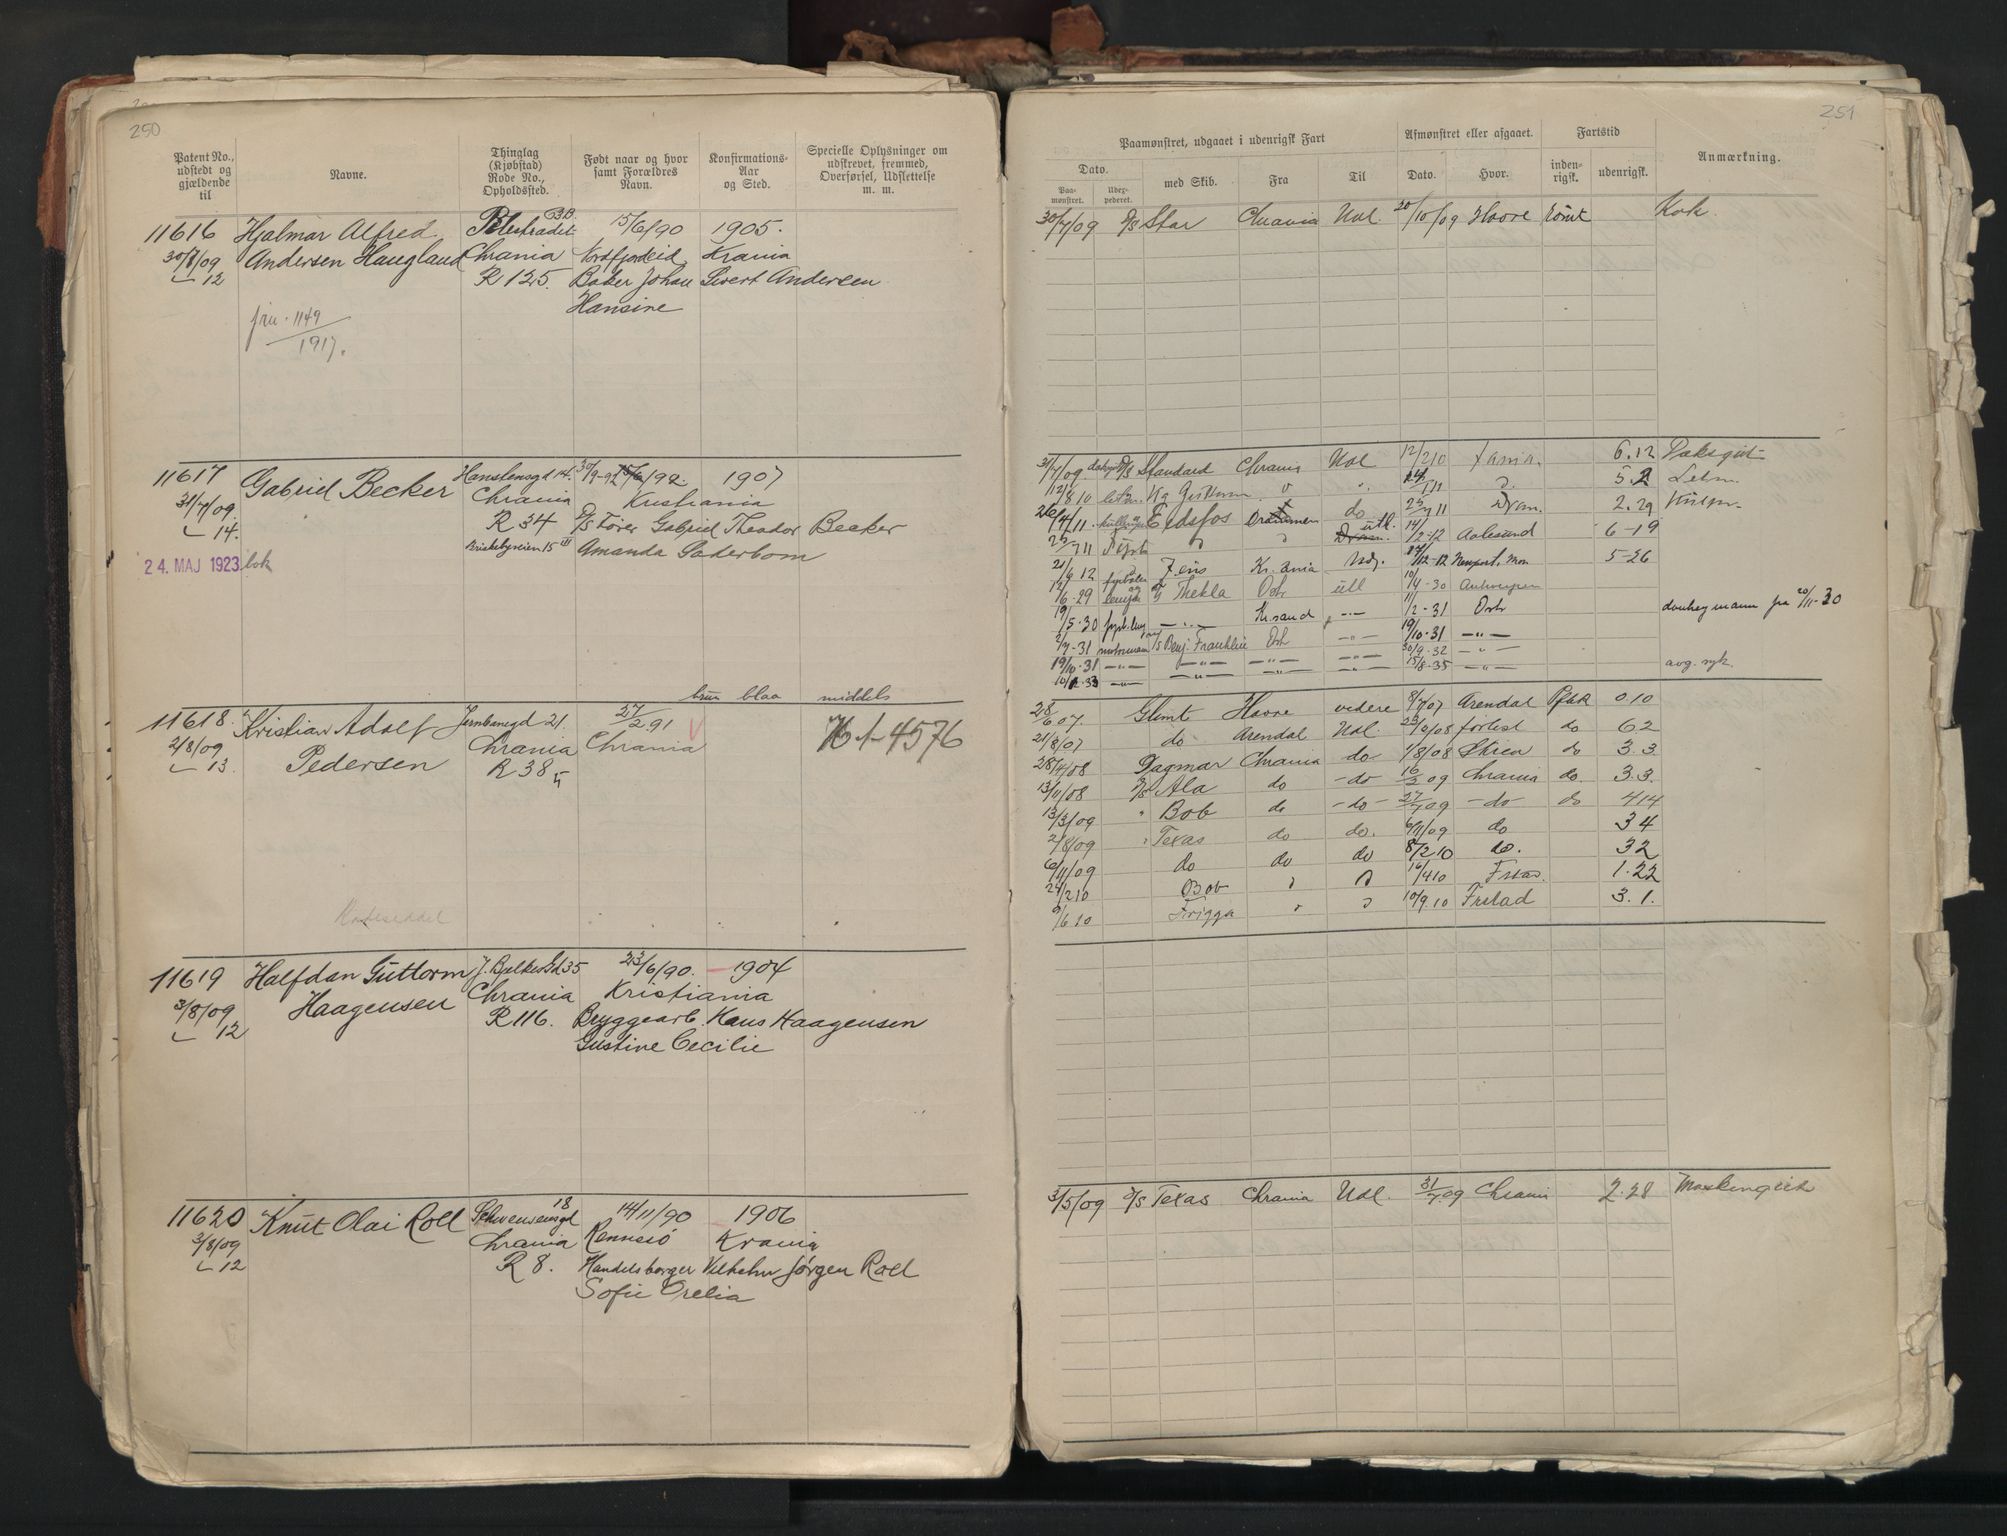 250
Patent No., udstedt og gjældende til
Navne.
Thinglag (Kjøbstad) Rode No., Opholdssted.
Født naar og hvor samt Forældres Navn.
Konfirmations-Aar og Sted.
Specielle Oplysninger om udskrevet, fremmed, Overførsel, Udslettelse m. m.
11616 Hjalmar Alfred 15/6/90 1905.
30/7/09 Andersen Haugland Chrania Nordfjordeid Krania
12 R 125. Baker Johan Sivert Andersen
Hansine
fru. 1149
1917.
11617 Gabriel Becker 14. 30/9-92 1907
31/7/09 Chrania Kristiania
14. R 34 D/S Fører Gabriel Theodor Becker
24. MAJ 1923 bok Briskebyveien 15 III Amanda Søderbom
brun blaa middels
11618. Kristian Adolf Jernbanegd 21. 27/2.91 V
2/8/09 Pedersen Chrania Chrania
13. R 38
4576
11619 Halfdan Guttorm J. Bjelkes Gd 35 23/6/90. 1904
3/8/09 Haagensen Chrania Kristiania
12 R 116. Bryggearb. Hans Haagensen
Gustine Cecilie
11620 Knut Olai Roll Schwensensgd 18 14/11/90 1906
3/8/09 Chrania Rennesö Krania
12 R 8. Handelsborger Vilhelm Jørgen Roll
Sofie Orelia
251
Paamønstret, udgaaet i udenrigsk Fart
Afmønstret eller afgaaet.
Fartstid
Anmærkning.
Dato.
Paa-mønstret.
Udex-pederet.
med Skib.
Fra
Til
Dato.
Hvor.
inden-rigsk.
udenrigsk.
30/7/09 D/S Star Chrania Udl. 20/10/09 Havre rømt Kok.
31/7/09. D/S Standard Chrania Udl 12/2 10 Xania. 6.12 Dæksgut
12/8 10 5.2 Letm.
26/4/11. Eidsfos Drammen do 25/7 11 Dram. 2.29
25/7 11 Dram. utl. 14/2-12 Aalesund 6-19
21/6 12 Jens Kr.ania Udg. Newport. Mon 5-26
12/6-29 Thekla Osl utl 10/4-30 Antwerpen
19/5-30 Kr.sand -"- 11/2-31 Osl donkeymann fra 20/11-30
2/7-31 motormann M/S Benj. Franklin Osl -"- 19/10-31 -"-
19/10-31 -"- -"- -"- -"- 30/9-32 -"-
-"- -"- -"- 15/8-35 -"- avg. syk.
28/6 07. Glimt Havre videre 8/7/07 Arendal Pstk 0.10
21/8/07 do Arendal Udl. forlist do 6 2
28/4/08 Dagmar Chrania do 1/8/08 Skien do 3.3
13/11/08 D/S Ala do -do- 16/2 09 Chrania do. 3.3.
13/3/09 " Bob do -do- 27/7 09 -do- do 4 14
2/8/09 " Texas do do. 6/11/09 do 3 4
6/11/09 do do do 8/2 10 do. 3 2
24/2 10 Bob 16/4 10 Fstad. 1.22
9/6 10 Frigga 10/9.10 Frstad 3.1.
3/5/09 D/S Texas Chrania Udl. 31/7.09 Chrania 2.28 Maskingut